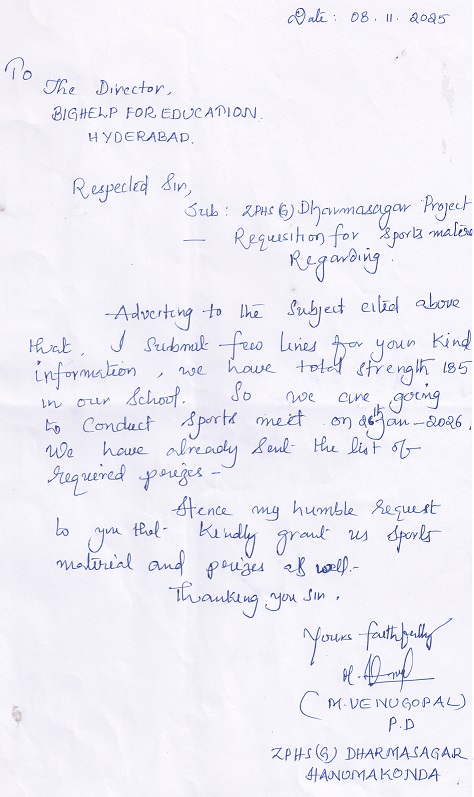 Date: 08.11.2025
To
The Director,
BIGHELP FOR EDUCATION.
HYDERABAD.
Respected Sir,
Sub: ZPHS(G) Dharmasagar Project
— Requisition for Sports materi
Regarding.
Adverting to the subject cited above
that, I submit few lines for your kind
information, we have total strength 185
in our School. So we are going
to conduct sports meet on 26th Jan-2026.
We have already sent the list of
required perizes -
Hence my humble request
to you that kindly grant us sports
material and perizes as well.-
Thanking you sir.
Yours faithfully
(M.VENUGOPAL)
P.D
ZPHS(G) DHARMASAGAR
HANUMAKONDA